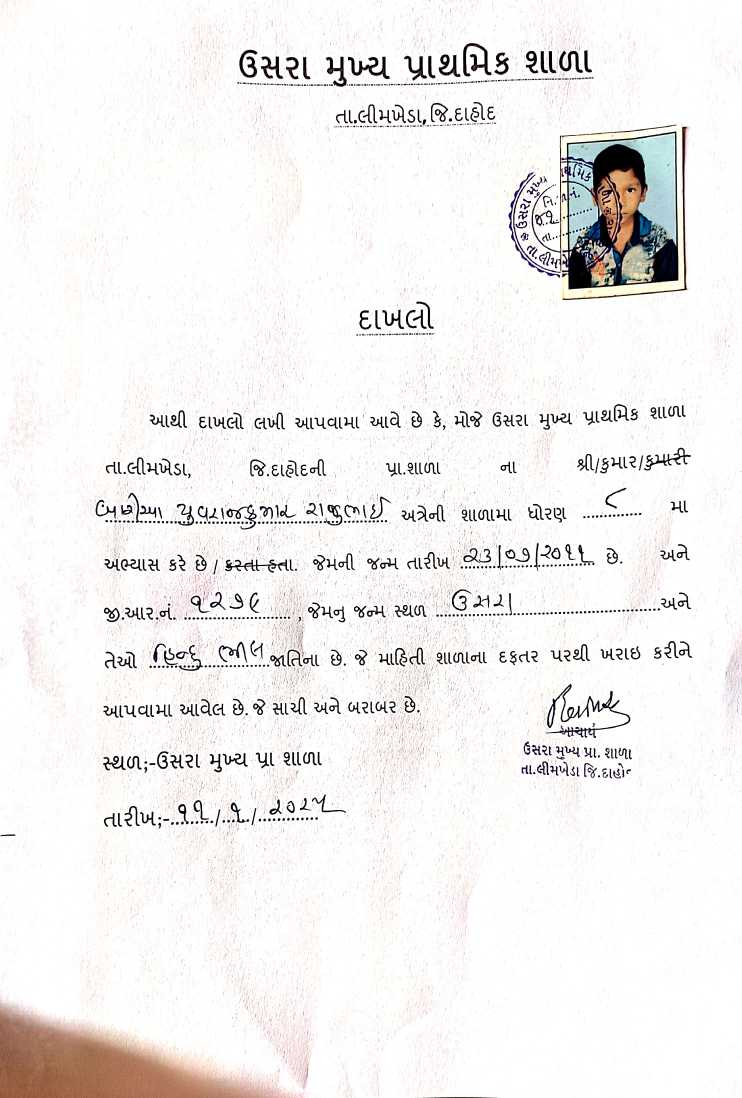 ઉસરા મુખ્ય પ્રાથમિક શાળા
તા.લીમખેડા, જિ.દાહોદ
દાખલો
આથી દાખલો લખી આપવામા આવે છે કે, મોજે ઉસરા મુખ્ય પ્રાથમિક શાળા
તા.લીમખેડા, જિ.દાહોદની પ્રા.શાળા ના શ્રી/કુમાર/કુમારી
યુવરાજકુમાર રાજુભાઈ અત્રેની શાળામા ધોરણ ૮ મા
અભ્યાસ કરે છે / કરતા હતા. જેમની જન્મ તારીખ ૨૩/૦૭/૨૦૧૧ છે. અને
જી.આર.નં. ૧૨૭૯, જેમનુ જન્મ સ્થળ ઉસરા અને
તેઓ હિન્દુ ભીલ જાતિના છે. જે માહિતી શાળાના દફતર પરથી ખરાઇ કરીને
આપવામા આવેલ છે. જે સાચી અને બરાબર છે.
આચાર્ય
સ્થળ;-ઉસરા મુખ્ય પ્રા શાળા
ઉસરા મુખ્ય પ્રા. શાળા
તા.લીમખેડા જિ.દાહોદ
તારીખ;-૧૧/૧/૨૦૨૫